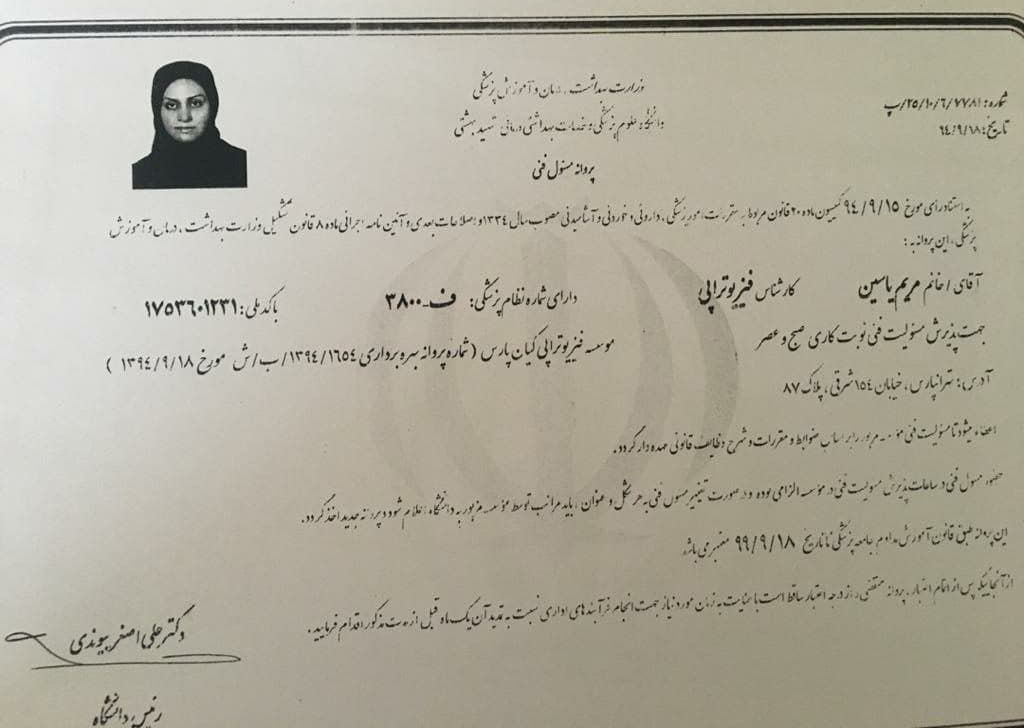 وزارت بهداشت، درمان و آموزش پزشکی
دانشگاه علوم پزشکی و خدمات بهداشتی درمانی شهید بهشتی
شماره: ۲۵/۱۰/۶/۷۷۸۱/پ
تاریخ: ۹۴/۹/۱۸
پروانه مسئول فنی
به استناد رای مورخ ۹۴/۹/۱۵ کمیسیون ماده ۲۰ قانون مربوط به مقررات امور پزشکی، داروئی و خوردنی و آشامیدنی مصوب سال ۱۳۳۴ و اصلاحات بعدی و آئین نامه اجرائی ماده ۸ قانون تشکیل وزارت بهداشت، درمان و آموزش
پزشکی، این پروانه به:
آقای / خانم مریم یاسین کارشناس فیزیوتراپی دارای شماره نظام پزشکی: ف-۳۸۰۰ با کد ملی: ۱۷۵۳۶۰۱۲۳۱
جهت پذیرش مسئولیت فنی نوبت کاری صبح و عصر موسسه فیزیوتراپی کیان پارس (شماره پروانه بهره برداری ۱۳۹۴/۱۶۵۴/ب/ش مورخ ۱۳۹۴/۹/۱۸)
آدرس: تهرانپارس، خیابان ۱۵۴ شرقی، پلاک ۸۷
اعطاء میشود تا مسئولیت فنی مؤسسه مزبور را بر اساس ضوابط و مقررات و شرح وظایف قانونی عهده دار گردد.
حضور مسئول فنی در ساعات پذیرش مسئولیت فنی در مؤسسه الزامی بوده و در صورت تغییر مسئول فنی به هر شکل و عنوان، باید مراتب توسط مؤسسه مزبور به دانشگاه اعلام شود و پروانه جدید اخذ گردد.
این پروانه طبق قانون آموزش مداوم جامعه پزشکی تا تاریخ ۹۹/۹/۱۸ معتبر می باشد
از آنجائیکه پس از اتمام اعتبار، پروانه منقضی و از درجه اعتبار ساقط است با عنایت به زمان مورد نیاز جهت انجام فرآیندهای اداری نسبت به تمدید آن یک ماه قبل از مدت مذکور اقدام فرمایید.
دکتر علی اصغر پیوندی
رئیس دانشگاه